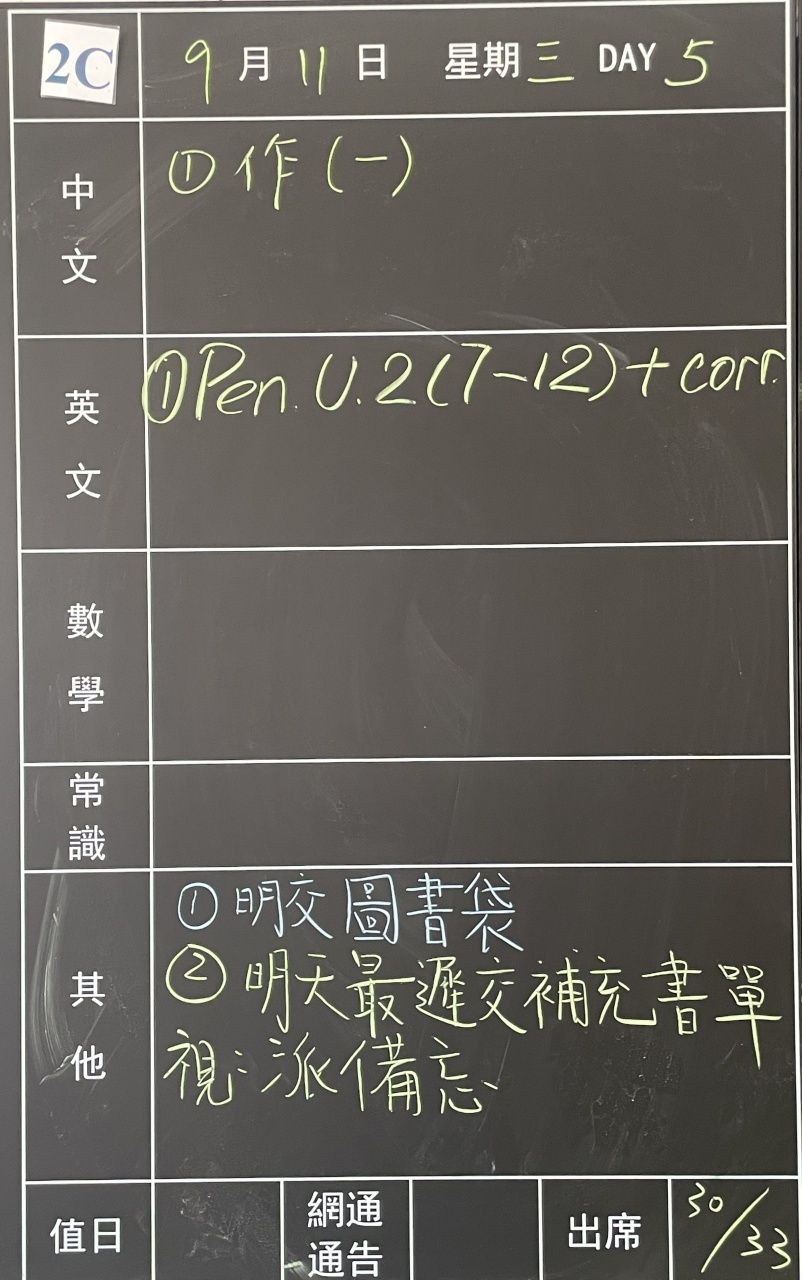 2C
9月11日 星期三 DAY 5
中文
①作(一)
英文
①Pen. U.2(7-12)+corr.
數學
常識
其他
①明交圖書袋
②明天最遲交補充書單
視:派備忘
值日
網通
通告
出席
30/33